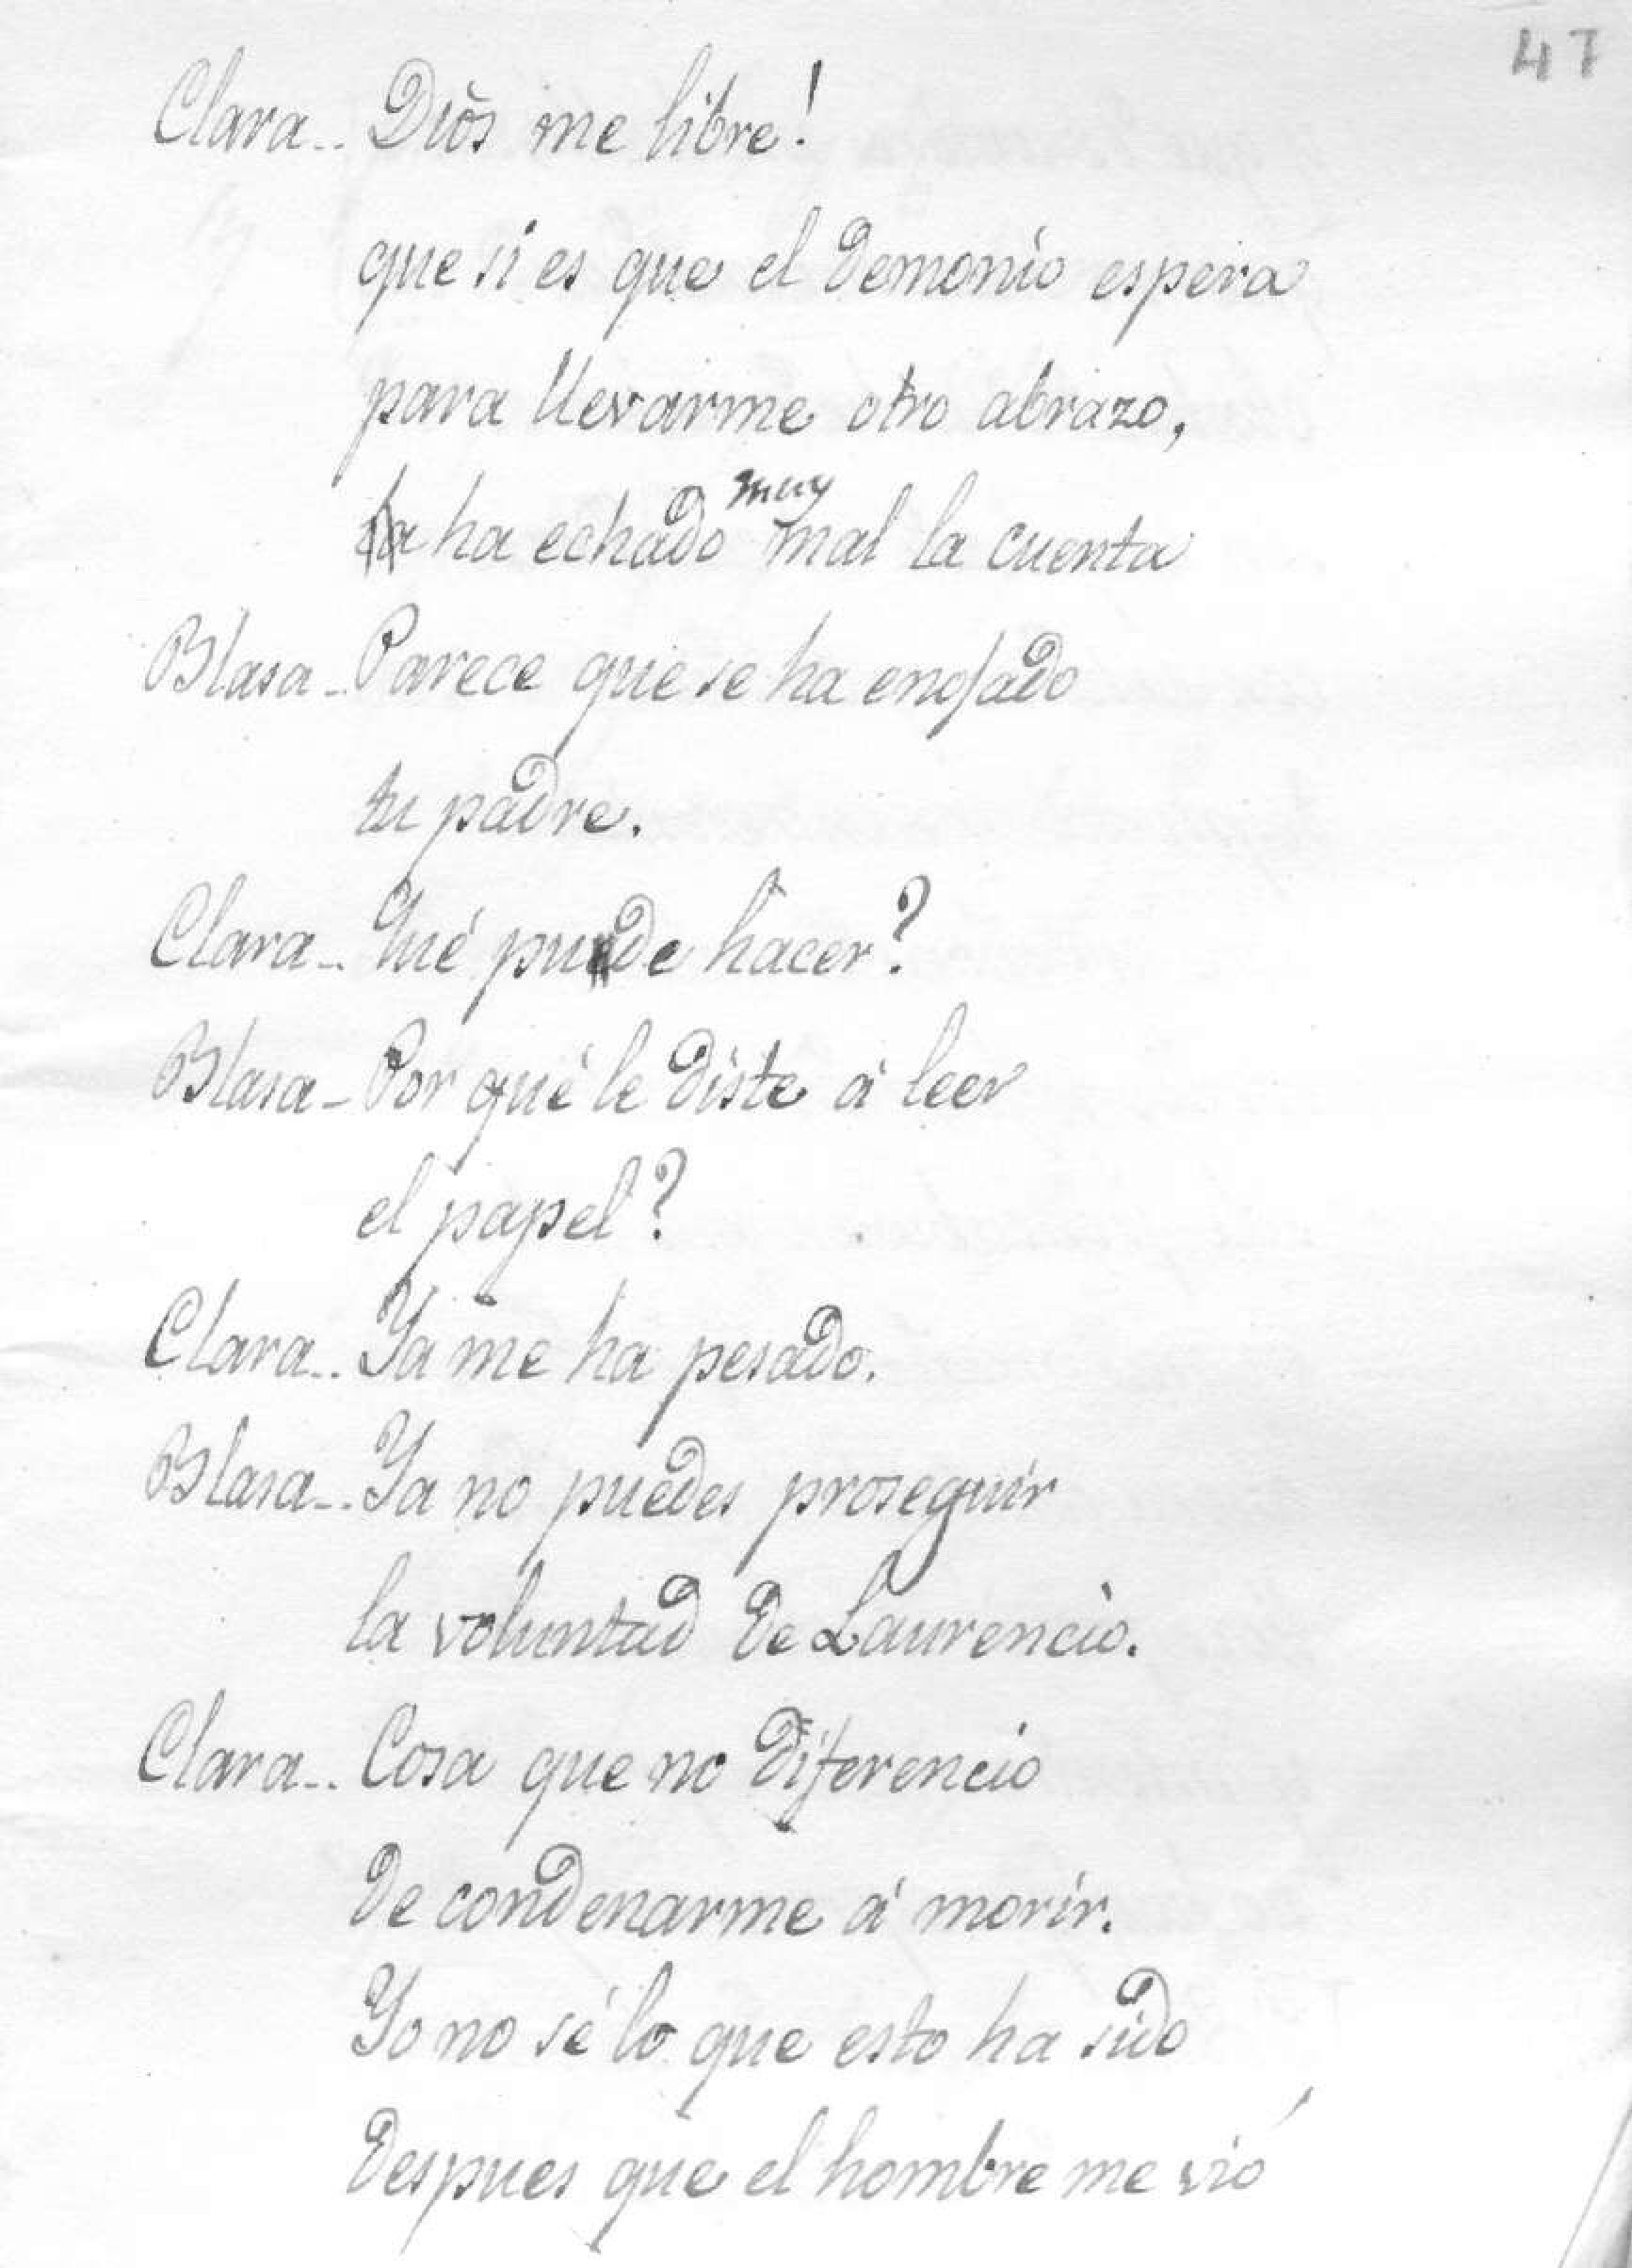 47
Clara.. Dios me libre!
que si es que el demonio espera
para llevarme otro abrazo,
ha echado muy mal la cuenta
Blasa.. Parece que se ha enojado
tu padre.
Clara.. Qué puede hacer?
Blasa.. Por qué le diste á leer
el papel?
Clara.. Ya me ha pesado.
Blasa.. Ya no puedes proseguir
la voluntad de Laurencio.
Clara.. Cosa que no diferencio
de condenarme á morir.
Yo no sé lo que esto ha sido
Despues que el hombre me vió